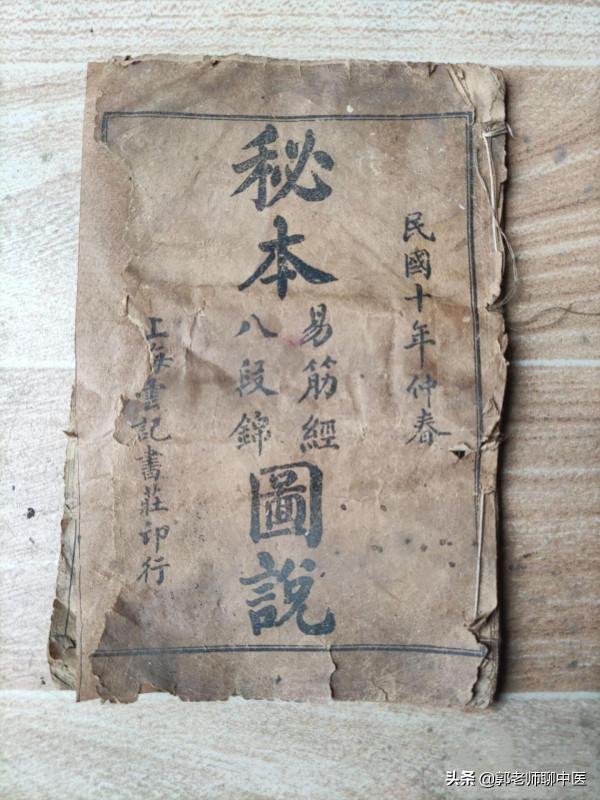 民國十年仲春
秘本
易筋經
八段錦
圖說
上海雲記書莊印行
头条 @郭老师聊中医